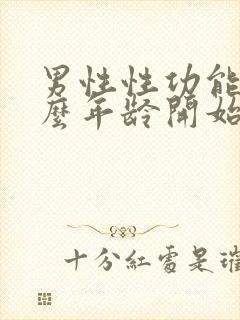 男性性功能
麼年齡開始
十分紅處是璀